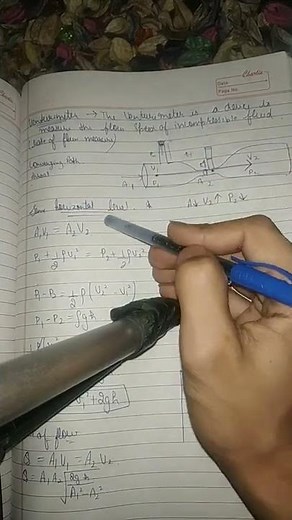 Charlie
Date
Page No.
Venturimeter → The Venturimeter is a device to
measure the flow speed of incompressible fluid
(rate of flow measure)
Converging Path
A₁
A₂
V₂
P₁
P₂
Same horizontal level
A↓ V₂↑ P₂↓
A₁V₁ = A₂V₂
P₁ + 1/2 ρV₁² = P₂ + 1/2 ρV₂²
P₁ - P₂ = 1/2 ρ (V₂² - V₁²)
P₁ - P₂ = ρgh
V₁² + 2gh
of flow
Q = A₁V₁ = A₂V₂
Q = A₁A₂ √2gh/A₁² - A₂²